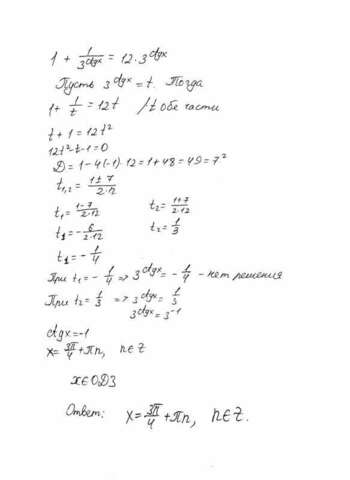 1 + 1/3^ctgx = 12·3^ctgx
Пусть 3^ctgx = t. Тогда
1 + 1/t = 12t /t обе части
t + 1 = 12t²
12t² - t - 1 = 0
D = 1 - 4(-1)·12 = 1 + 48 = 49 = 7²
t₁,₂ = 1±7/2·12
t₁ = 1-7/2·12 t₂ = 1+7/2·12
t₁ = -6/2·12 t₂ = 1/3
t₁ = -1/4
При t₁ = -1/4 => 3^ctgx = -1/4 - нет решения
При t₂ = 1/3 => 3^ctgx = 1/3
3^ctgx = 3^-1
ctgx = -1
x = 3π/4 + πn, n∈Z
x∈ОДЗ
Ответ: x = 3π/4 + πn, n∈Z.